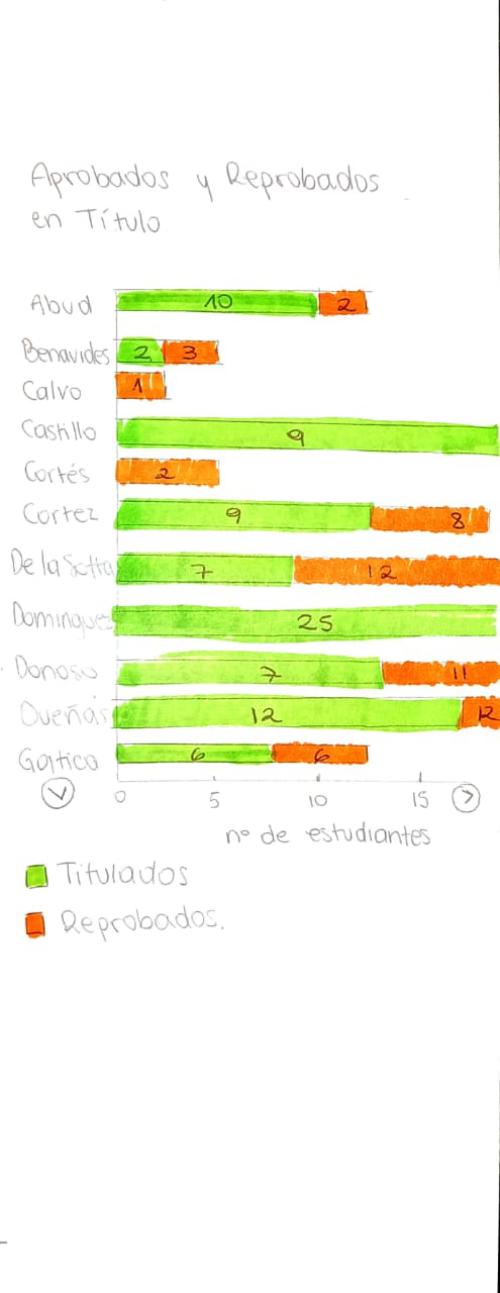 Aprobados y Reprobados
en Título
Abud 10 2
Benavides 2 3
Calvo 1
Castillo 9
Cortés 2
Cortez 9 8
De la Sotta 7 12
Dominguez 25
Donoso 7 11
Dueñas 12 12
Gatica 6 6
0 5 10 15
n° de estudiantes
Titulados
Reprobados.